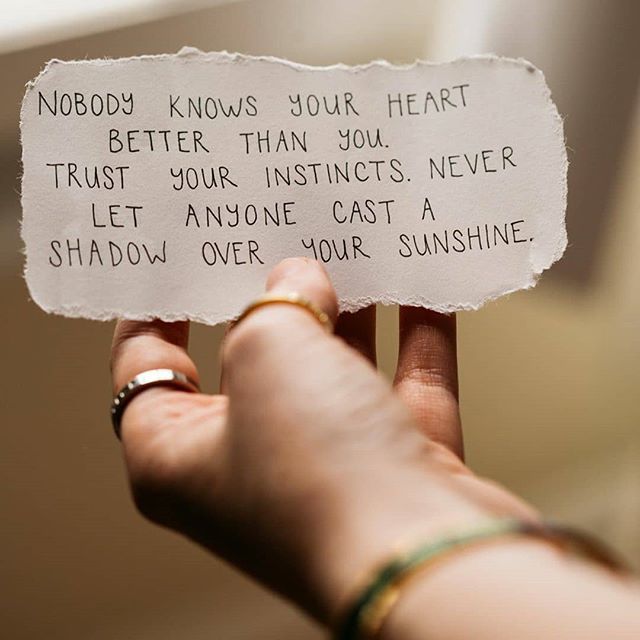 NOBODY KNOWS YOUR HEART
BETTER THAN YOU.
TRUST YOUR INSTINCTS. NEVER
LET ANYONE CAST A
SHADOW OVER YOUR SUNSHINE.